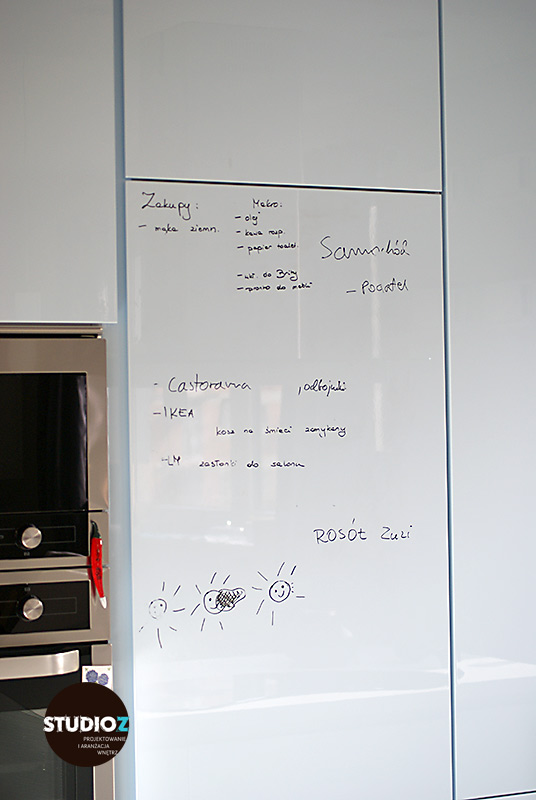 Zakupy:
- mąka ziemn.
Makro:
- olej
- kawa rozp.
- papier toalet.
- do
- do mebli
Samochód
- Podatek
- Castorama , odbojniki
- IKEA
kosz na śmieci zamykany
- LM zasłonki do salonu
ROSÓŁ Zuzi
STUDIOZ
PROJEKTOWANIE
I ARANŻACJA
WNĘTRZ